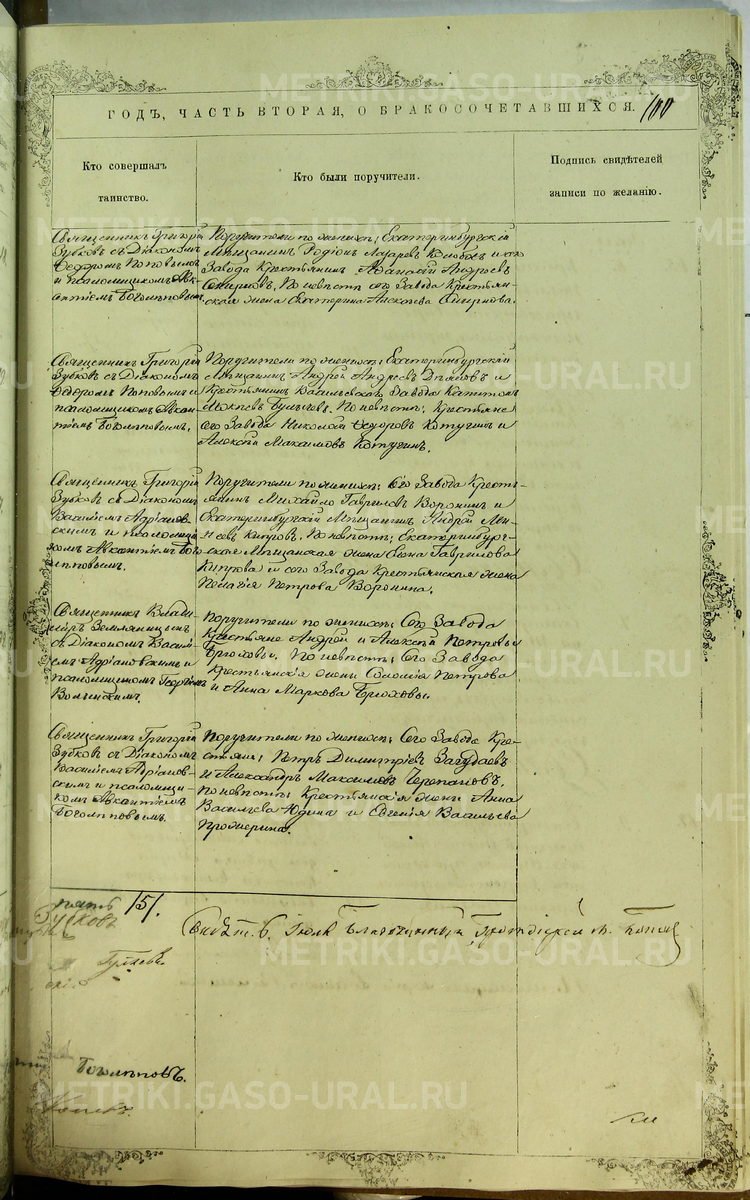 ГОДЪ, ЧАСТЬ ВТОРАЯ, О БРАКОСОЧЕТАВШИХСЯ. 100
Кто совершалъ
таинство.
Кто были поручители.
Подпись свидѣтелей
записи по желанію.
Священникъ Григорій
Зубковъ съ Діакономъ
Ѳедоромъ Поповымъ
и псаломщикомъ Авк-
сентіемъ Боголѣповымъ.
Поручители по женихѣ: Екатеринбургскій
Мѣщанинъ Родіонъ Лазаревъ и сего
Завода Крестьянинъ Аѳанасій Андреевъ
Смирновъ. По невѣстѣ сего Завода Крестьян-
ская жена Екатерина Алексѣева Смирнова.
Священникъ Григорій
Зубковъ съ Діакономъ
Ѳедоромъ Поповымъ и
псаломщикомъ Авксен-
тіемъ Боголѣповымъ.
Поручители по женихѣ: Екатеринбургскій
Мѣщанинъ Андрей Андреевъ и
Крестьянинъ Васильевскаго Завода Капитонъ
По невѣстѣ: Крестьяне
сего Завода Николай Ѳедоровъ Котугинъ и
Алексѣй Максимовъ Котугинъ.
Священникъ Григорій
Зубковъ съ Діакономъ
Василіемъ Адріанов-
скимъ и псаломщи-
комъ Авксентіемъ Бого-
лѣповымъ.
Поручители по женихѣ: Сего Завода Кресть-
янинъ Михайло Гавриловъ Воронинъ и
Екатеринбургскій Мѣщанинъ Андрей
Кипровъ. По невѣстѣ: Екатеринбург-
ская Мѣщанская жена Гаврилова
Кипрова и сего Завода Крестьянская жена
Пелагія Петрова Воронина.
Священникъ Влади-
міръ Земляницынъ
съ Діакономъ Василі-
емъ Адріановскимъ и
псаломщикомъ Георгіемъ
Поручители по женихѣ: Сего Завода
Крестьяне Андрей и Алексѣй Петровы
Брюховы. По невѣстѣ: Сего Завода
Крестьянскія жены Соломія Петрова
и Анна Маркова Брюховы.
Священникъ Григорій
Зубковъ съ Діакономъ
Василіемъ Адріанов-
скимъ и псаломщи-
комъ Авксентіемъ
Боголѣповымъ.
Поручители по женихѣ: Сего Завода Кре-
стьяне: Петръ Димитріевъ Загудаевъ
и Александръ Максимовъ Черепановъ,
по невѣстѣ: Крестьянскія жены Анна
Васильева Юдина и Евгенія Васильева
Прожерина.
пять /5/.
Зубковъ
Боголѣповъ.
Поповъ
METRIKI.GASO-URAL.RU